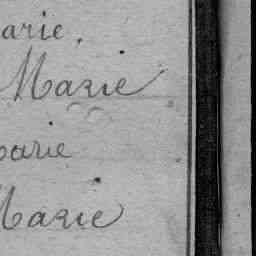 arie.
Marie
arie
Marie